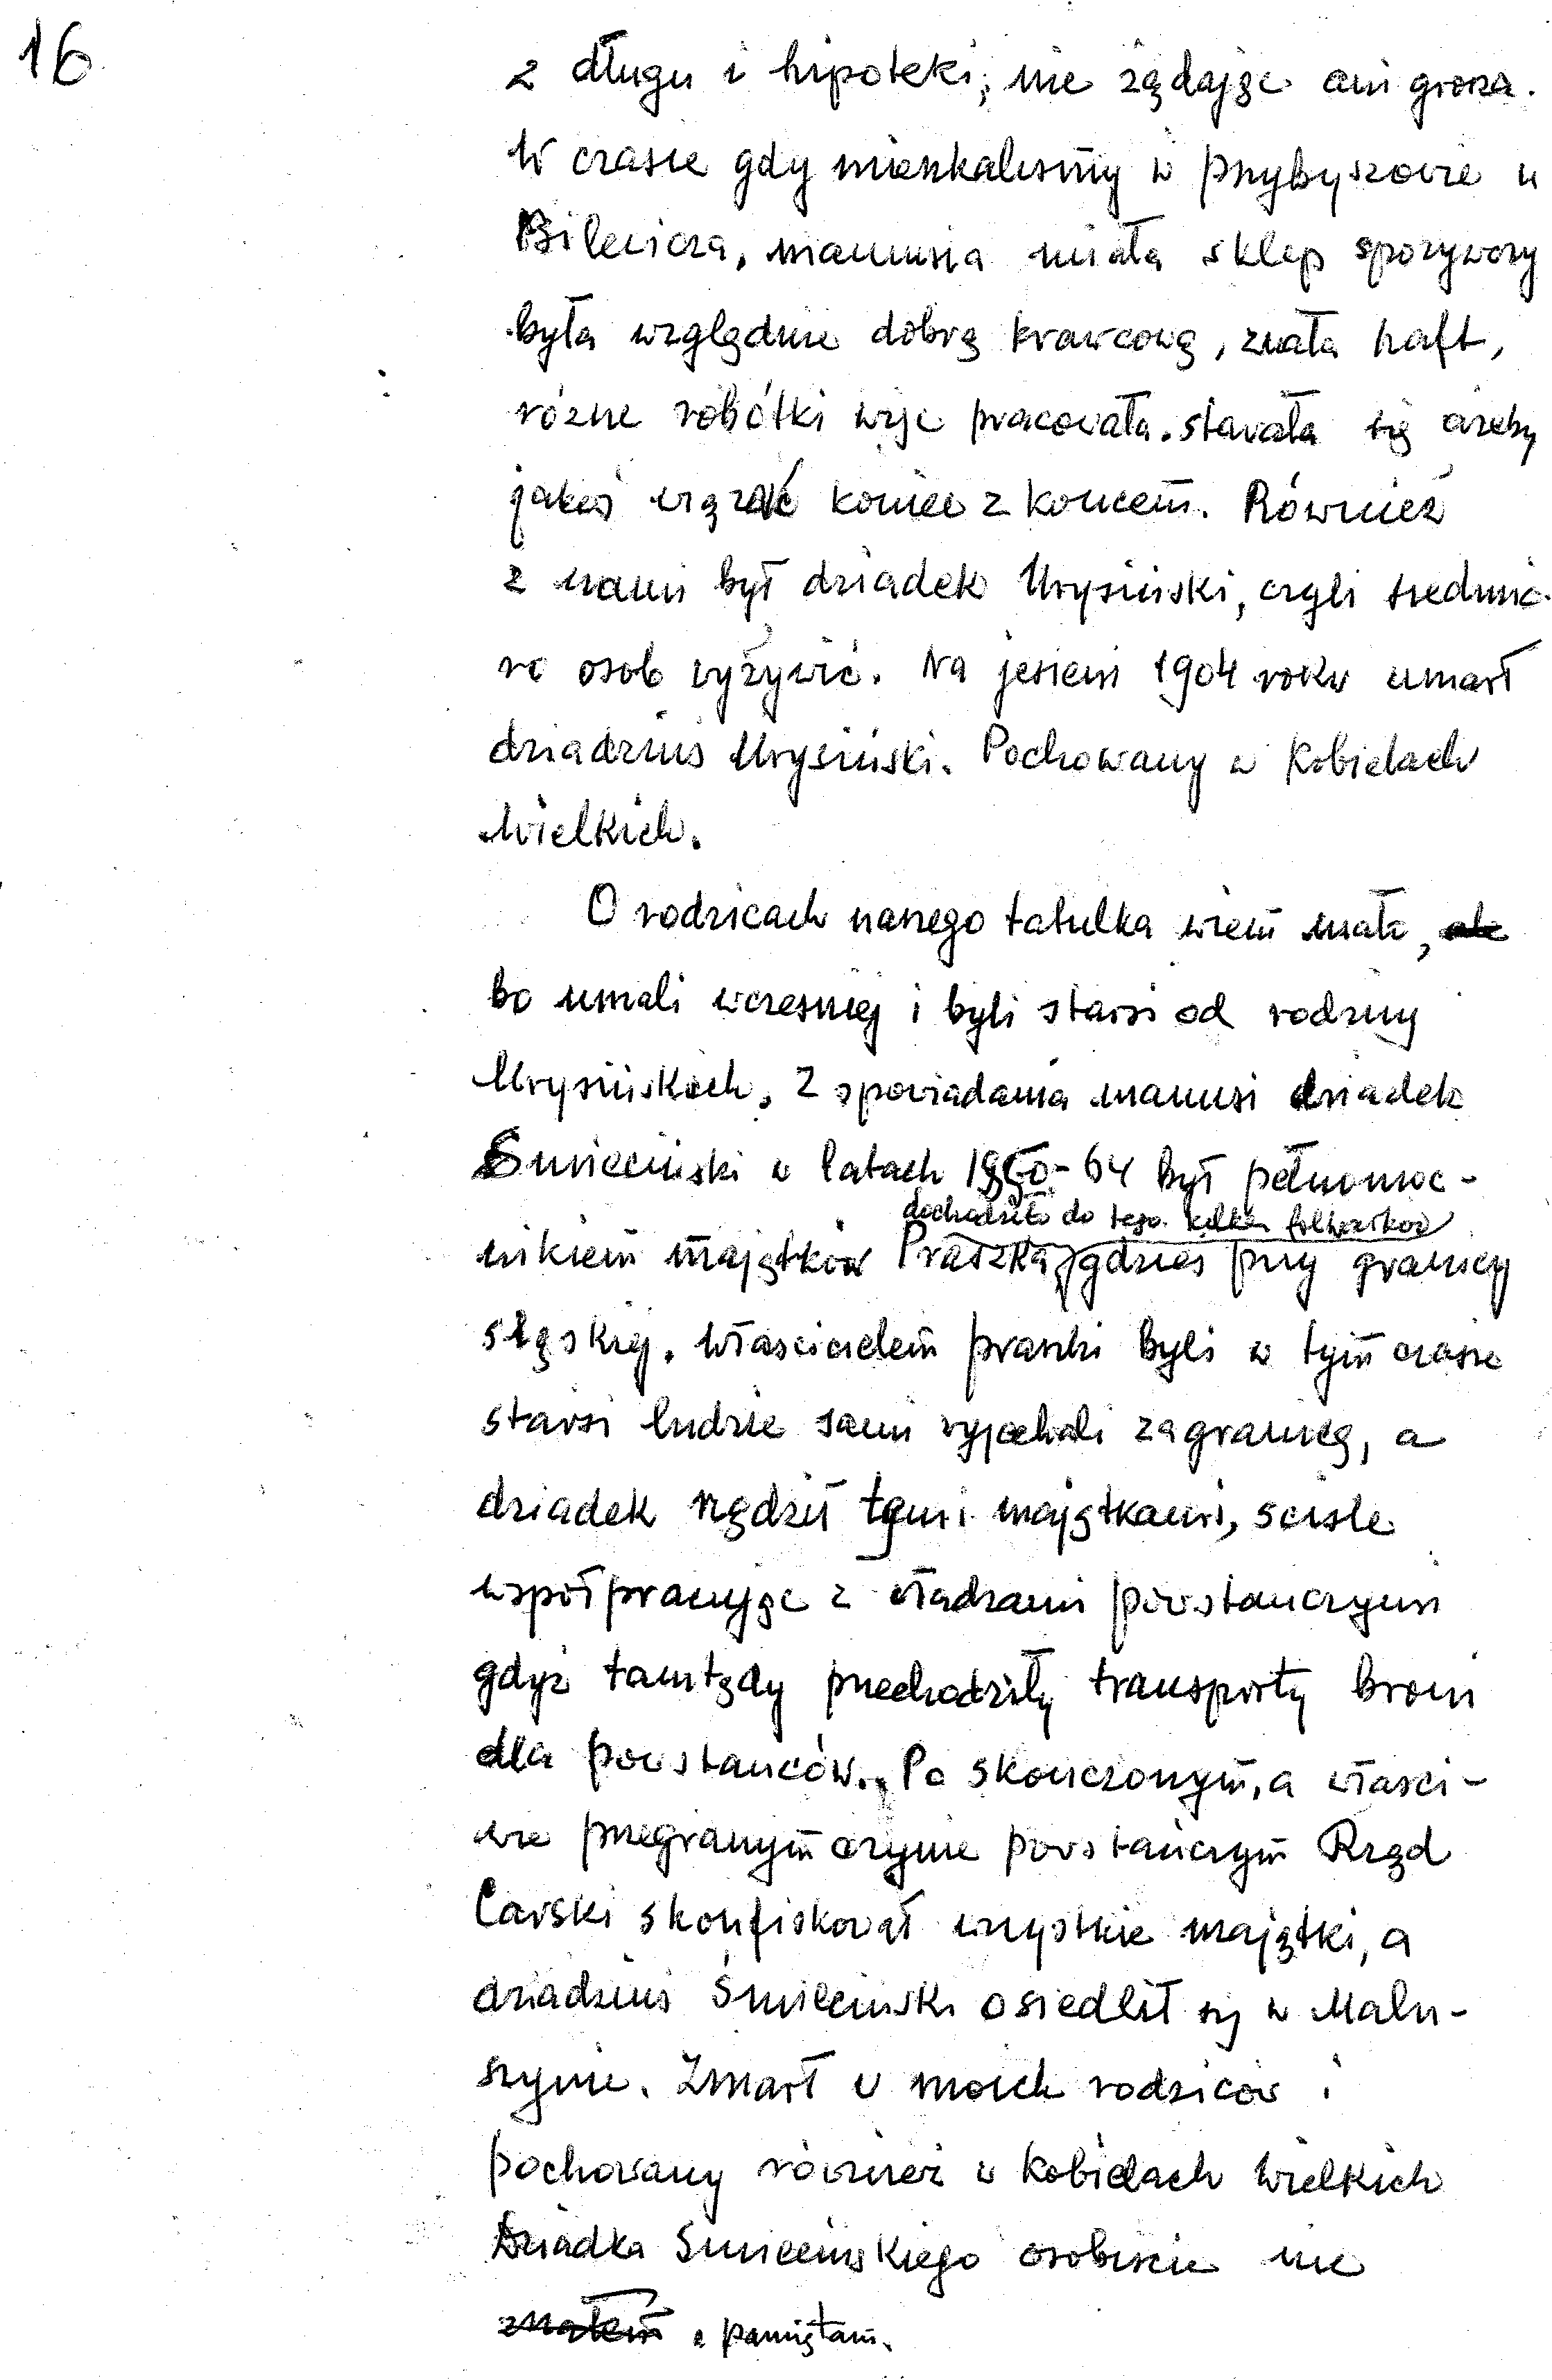 16
z długu i hipoteki, nie żądając ani grosza.
W czasie gdy mieszkaliśmy w Przybyszowie u
Bilewicza, mamusia miała sklep spozywczy
była względnie dobrą krawcową, znała haft,
rózne robótki więc pracowała. starała się ażeby
jakoś wiązać koniec z koncem. Również
z nami był dziadek Urysiński, czyli siedmio-
ro osob wyżywić. Na jesieni 1904 roku umarł
dziadzius Urysiński. Pochowany w Kobielach
Wielkich.
O rodzicach naszego tatulka wiem mało, ale
bo umali wczesniej i byli starsi od rodziny
Urysińskich. Z opowiadania mamusi dziadek
Smieciński w latach 1860-64 był pełnomoc-
dochodziło do tego kilka folwarkow
nikiem majątków Praszka, gdzies przy granicy
sląskiej. Włascicielem praszki byli w tym czasie
starsi ludzie sami wyjechali zagranicą, a
dziadek rządził tymi majątkami, scisle
współpracując z władzami powstanczymi
gdyż tamtędy przechodziły transporty broni
dla powstanców. Po skonczonym, a własci-
wie przegranym czynie powstańczym Rząd
Carski skonfiskował wszystkie majątki, a
dziadzius Śmieciński osiedlił się w Malu-
szynie. Zmarł u moich rodziców i
pochowany również w Kobielach Wielkich
Dziadka Smiecińskiego osobiscie nie
znałem pamiętam.